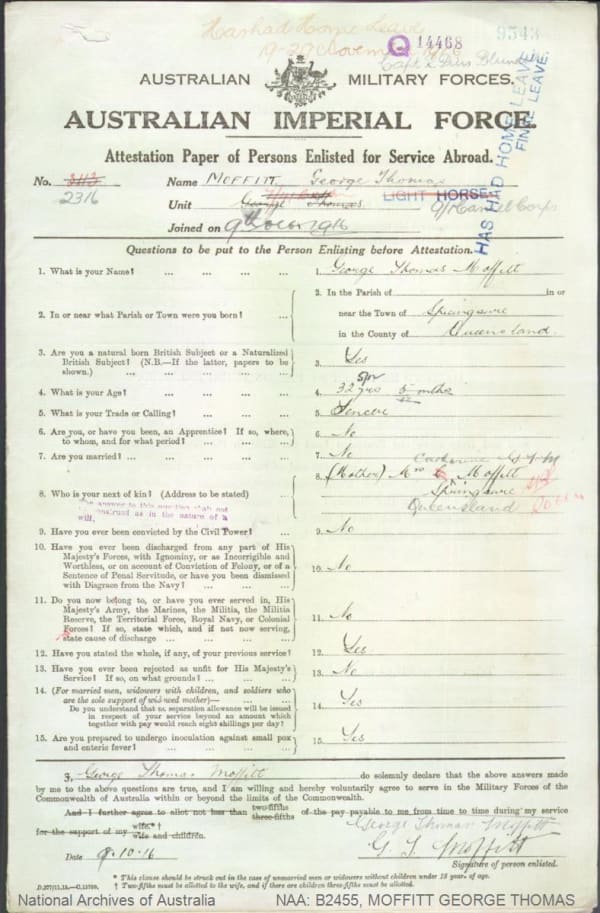 Has had Home Leave
Q 14468 9543
19-20 November 1916
AUSTRALIAN MILITARY FORCES.
AUSTRALIAN IMPERIAL FORCE.
HAS HAD HOME LEAVE
FINAL LEAVE
Attestation Paper of Persons Enlisted for Service Abroad.
No. 3113 Name MOFFITT George Thomas
2316 Unit George Thomas. LIGHT HORSE
Joined on 9th Octr 1916
Questions to be put to the Person Enlisting before Attestation.
1. What is your Name? ... ... ... ... 1. George Thomas Moffitt
2. In or near what Parish or Town were you born? ... 2. In the Parish of in or
near the Town of Springsure
in the County of Queensland
3. Are you a natural born British Subject or a Naturalized British Subject? (N.B.—If the latter, papers to be shown.) ... 3. Yes
4. What is your Age? ... ... ... ... 4. 32 yrs 5 months
5. What is your Trade or Calling? ... ... ... 5. Fencer
6. Are you, or have you been, an Apprentice? If so, where, to whom, and for what period? ... ... ... 6. No
7. Are you married? ... ... ... ... 7. No
8. Who is your next of kin? (Address to be stated) ... 8. (Mother) Mrs Catherine Moffitt G.T.M
Springsure
Queensland
9. Have you ever been convicted by the Civil Power? ... 9. No
10. Have you ever been discharged from any part of His Majesty's Forces, with Ignominy, or as Incorrigible and Worthless, or on account of Conviction of Felony, or of a Sentence of Penal Servitude, or have you been dismissed with Disgrace from the Navy? ... ... ... 10. No
11. Do you now belong to, or have you ever served in, His Majesty's Army, the Marines, the Militia, the Militia Reserve, the Territorial Force, Royal Navy, or Colonial Forces? If so, state which, and if not now serving, state cause of discharge ... ... ... ... 11. No
12. Have you stated the whole, if any, of your previous service? 12. Yes
13. Have you ever been rejected as unfit for His Majesty's Service? If so, on what grounds? ... ... ... 13. No
14. (For married men, widowers with children, and soldiers who are the sole support of widowed mother)—
Do you understand that no separation allowance will be issued in respect of your service beyond an amount which together with pay would reach eight shillings per day? 14. Yes
15. Are you prepared to undergo inoculation against small pox and enteric fever? ... ... ... ... 15. Yes
I, George Thomas Moffitt do solemnly declare that the above answers made
by me to the above questions are true, and I am willing and hereby voluntarily agree to serve in the Military Forces of the
Commonwealth of Australia within or beyond the limits of the Commonwealth.
And I further agree to allot not less than two-fifths three-fifths of the pay payable to me from time to time during my service
for the support of my wife*† wife and children.
George Thomas Moffitt
Date 9.10.16 G. T. Moffitt
Signature of person enlisted.
* This clause should be struck out in the case of unmarried men or widowers without children under 18 years of age.
† Two-fifths must be allotted to the wife, and if there are children three-fifths must be allotted.
National Archives of Australia NAA: B2455, MOFFITT GEORGE THOMAS